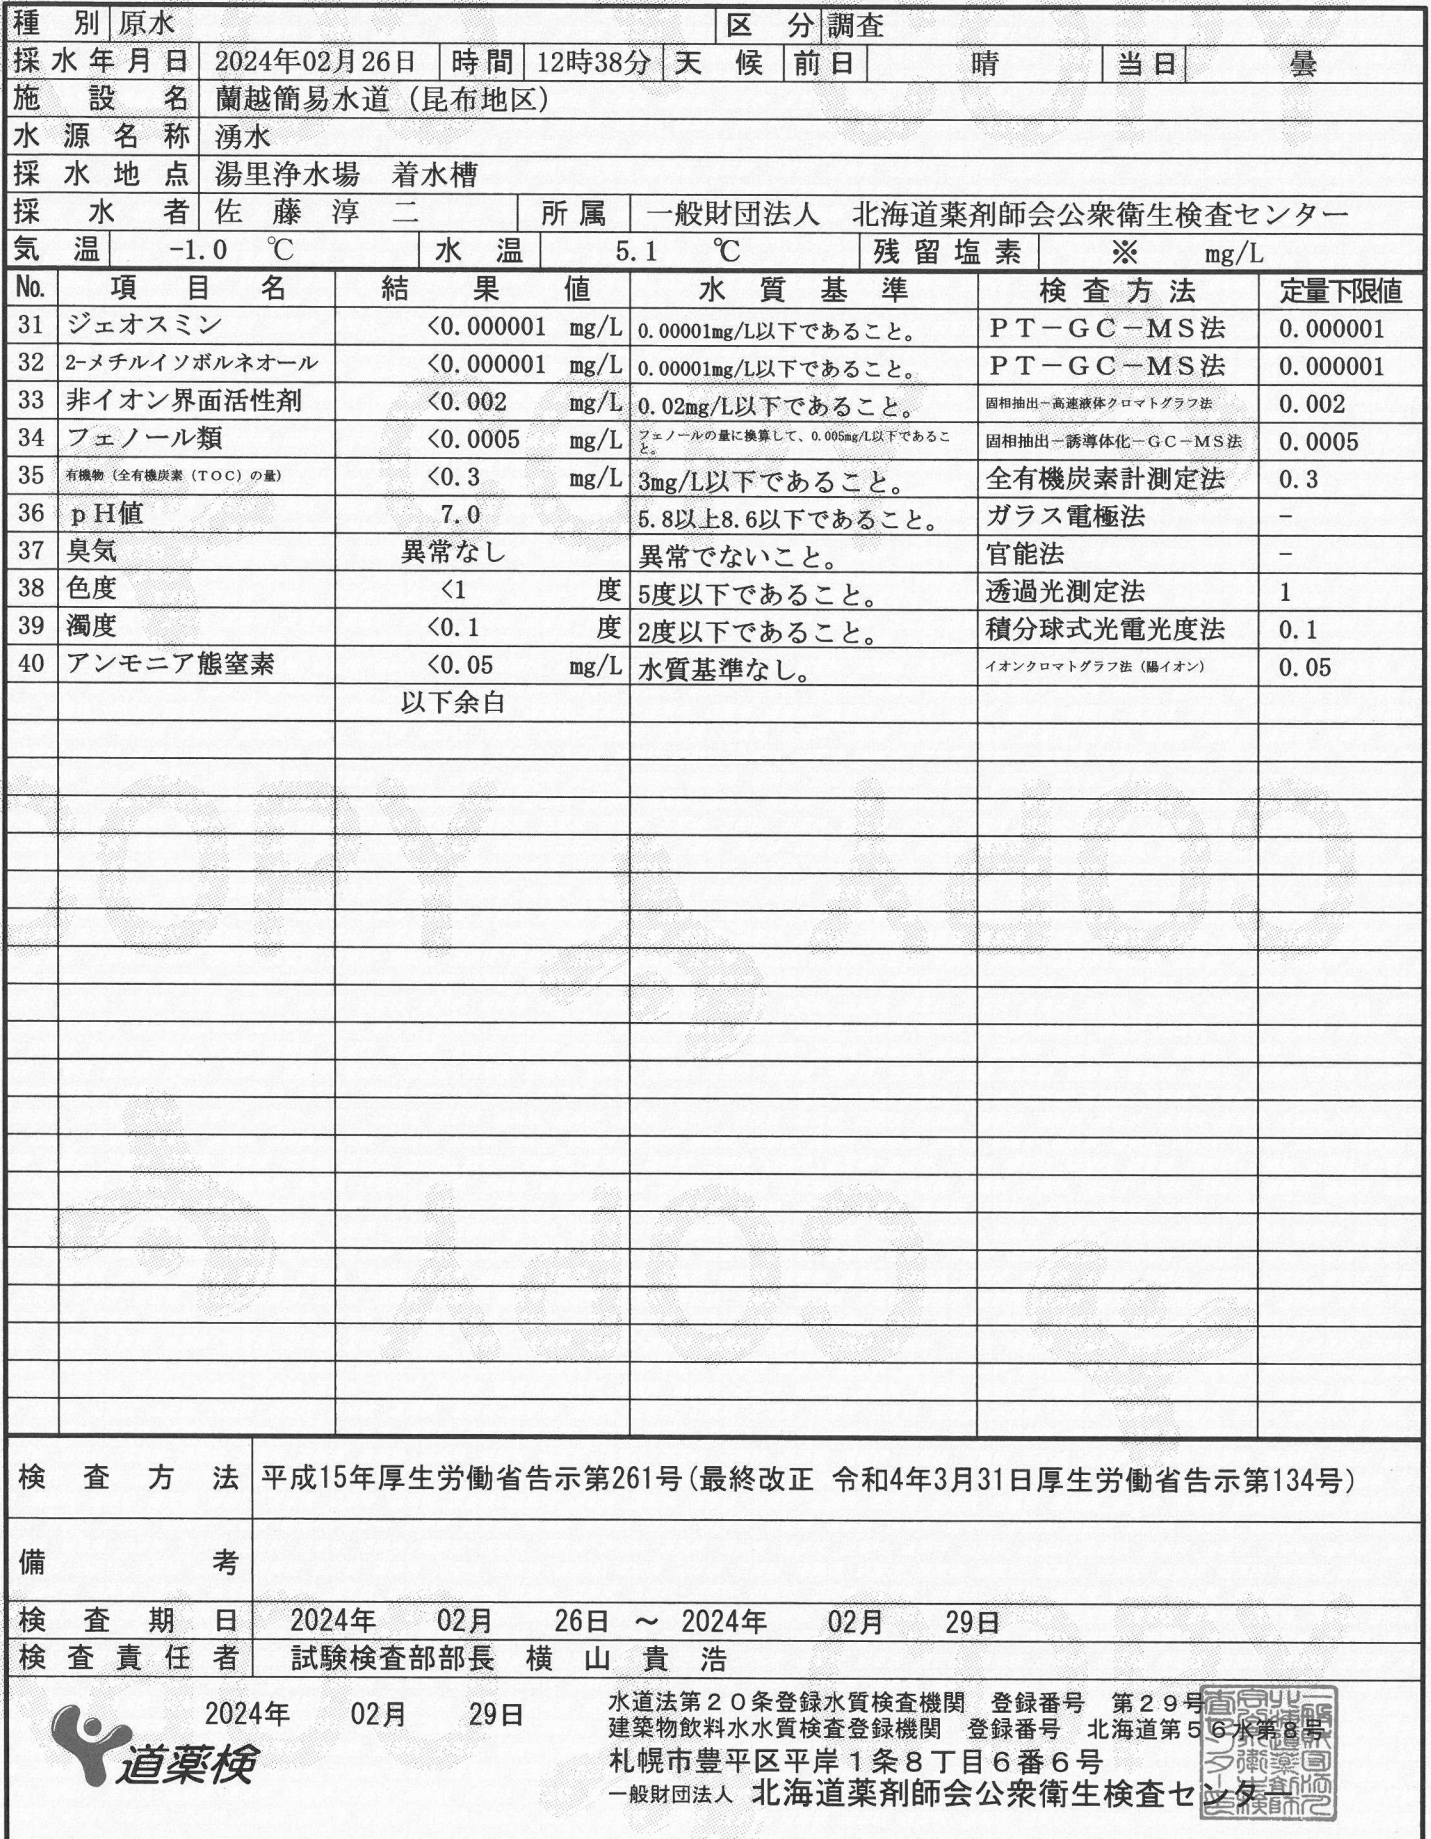 種 別 原水 区 分 調査
採水年月日 2024年02月26日 時間 12時38分 天候 前日 晴 当日 曇
施 設 名 蘭越簡易水道（昆布地区）
水源名称 湧水
採水地点 湯里浄水場 着水槽
採 水 者 佐 藤 淳 二 所属 一般財団法人 北海道薬剤師会公衆衛生検査センター
気 温 -1.0 ℃ 水 温 5.1 ℃ 残留塩素 ※ mg/L
No. 項 目 名 結 果 値 水 質 基 準 検査方法 定量下限値
31 ジェオスミン <0.000001 mg/L 0.00001mg/L以下であること。 ＰＴ－ＧＣ－ＭＳ法 0.000001
32 2-メチルイソボルネオール <0.000001 mg/L 0.00001mg/L以下であること。 ＰＴ－ＧＣ－ＭＳ法 0.000001
33 非イオン界面活性剤 <0.002 mg/L 0.02mg/L以下であること。 固相抽出－高速液体クロマトグラフ法 0.002
34 フェノール類 <0.0005 mg/L フェノールの量に換算して、0.005mg/L以下であること。 固相抽出－誘導体化－ＧＣ－ＭＳ法 0.0005
35 有機物（全有機炭素（ＴＯＣ）の量） <0.3 mg/L 3mg/L以下であること。 全有機炭素計測定法 0.3
36 ｐＨ値 7.0 5.8以上8.6以下であること。 ガラス電極法 －
37 臭気 異常なし 異常でないこと。 官能法 －
38 色度 <1 度 5度以下であること。 透過光測定法 1
39 濁度 <0.1 度 2度以下であること。 積分球式光電光度法 0.1
40 アンモニア態窒素 <0.05 mg/L 水質基準なし。 イオンクロマトグラフ法（陽イオン） 0.05
以下余白
検 査 方 法 平成15年厚生労働省告示第261号(最終改正 令和4年3月31日厚生労働省告示第134号)
備 考
検 査 期 日 2024年 02月 26日 ～ 2024年 02月 29日
検査責任者 試験検査部部長 横 山 貴 浩
2024年 02月 29日
道薬検
水道法第２０条登録水質検査機関 登録番号 第２９号
建築物飲料水水質検査登録機関 登録番号 北海道第５６水第８号
札幌市豊平区平岸１条８丁目６番６号
一般財団法人 北海道薬剤師会公衆衛生検査センター
COPY
COPY
COPY